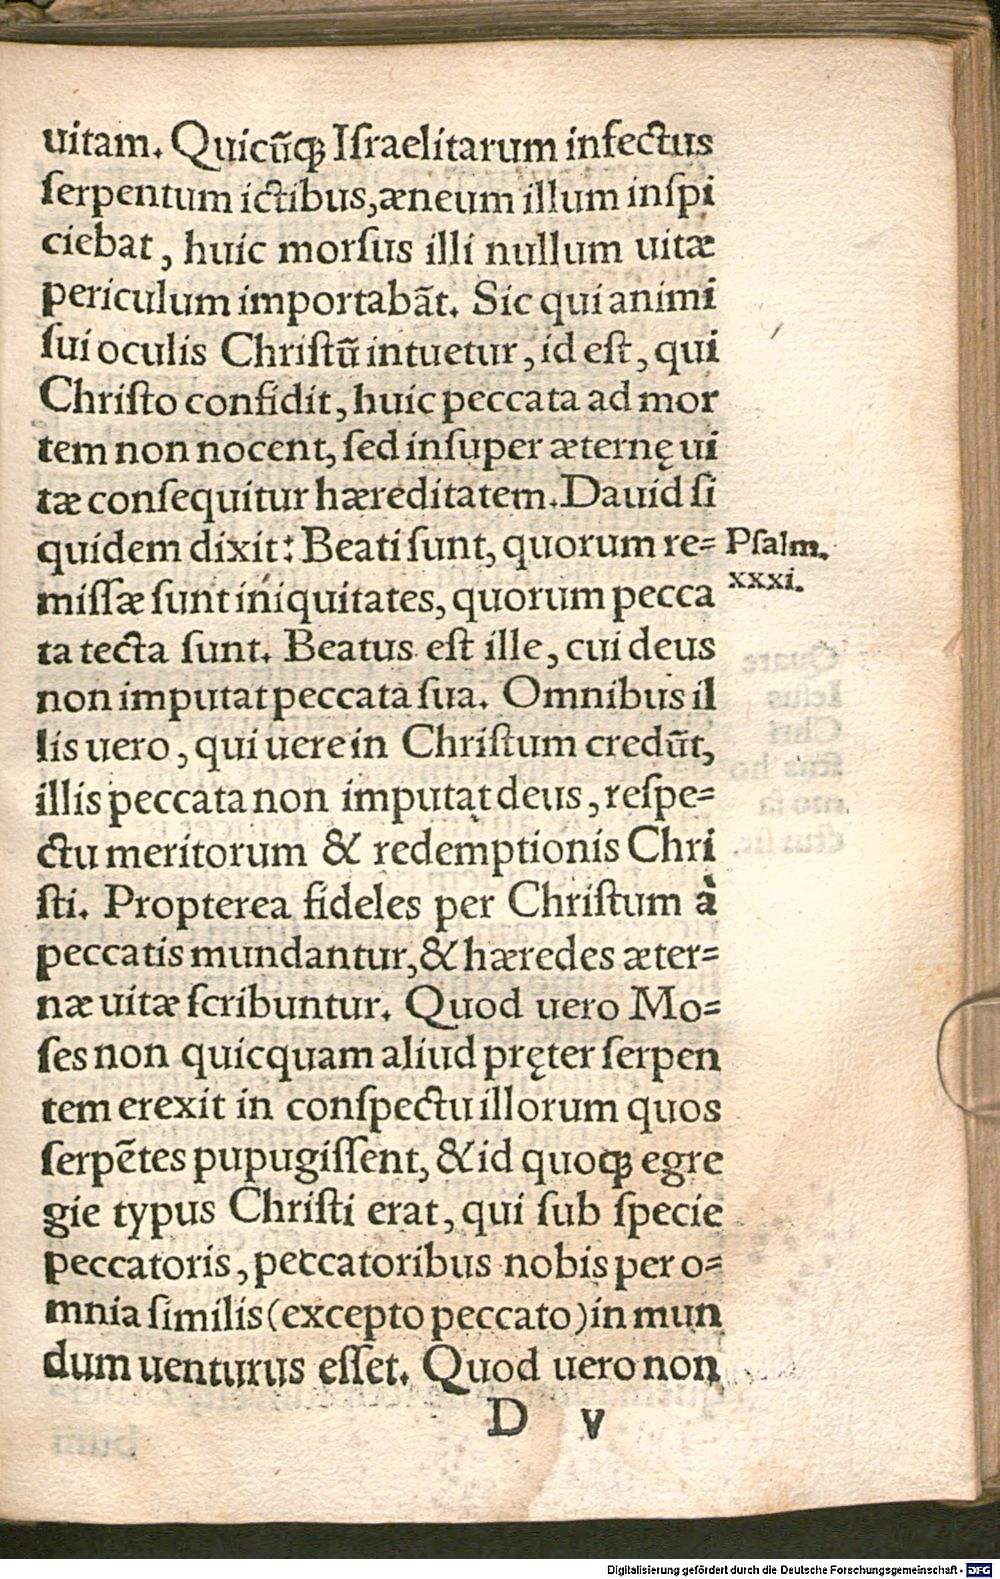 uitam. Quicũqꝫ Iſraelitarum infectus
ſerpentum ictibus, æneum illum inſpi
ciebat, huic morſus illi nullum uitæ
periculum importabãt. Sic qui animi
ſui oculis Chriſtũ intuetur, id eſt, qui
Chriſto confidit, huic peccata ad mor
tem non nocent, ſed inſuper æternę ui
tæ conſequitur hæreditatem. Dauid ſi
quidem dixit: Beati ſunt, quorum re⸗
Pſalm.
xxxi.
miſſæ ſunt iniquitates, quorum pecca
ta tecta ſunt. Beatus eſt ille, cui deus
non imputat peccata ſua. Omnibus il
lis uero, qui uere in Chriſtum credũt,
illis peccata non imputat deus, reſpe⸗
ctu meritorum & redemptionis Chri
ſti. Propterea fideles per Chriſtum à
peccatis mundantur, & hæredes æter⸗
næ uitæ ſcribuntur. Quod uero Mo⸗
ſes non quicquam aliud pręter ſerpen
tem erexit in conſpectu illorum quos
ſerpẽtes pupugiſſent, & id quoqꝫ egre
gie typus Chriſti erat, qui ſub ſpecie
peccatoris, peccatoribus nobis per o⸗
mnia ſimilis (excepto peccato) in mun
dum uenturus eſſet. Quod uero non
D v
Digitalisierung gefördert durch die Deutsche Forschungsgemeinschaft - DFG